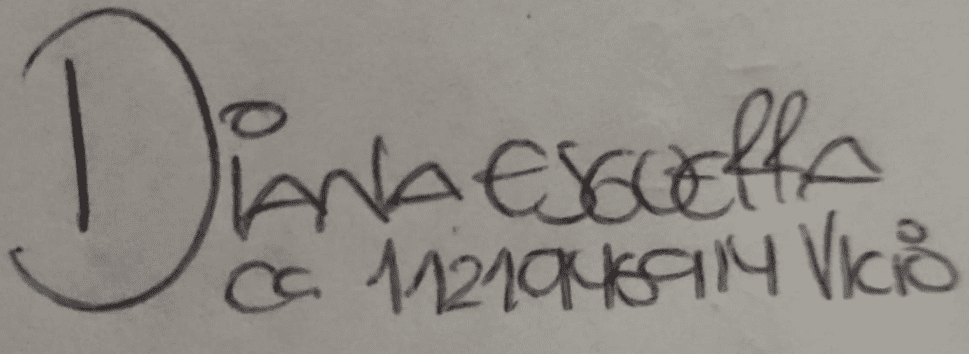 Diana Escuella
CC 1121946914 V/cio